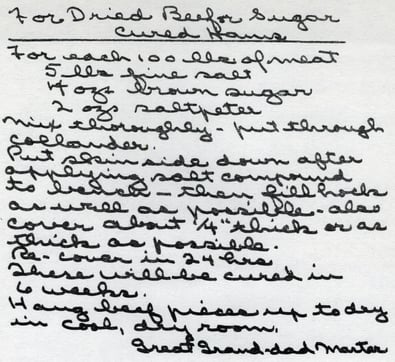 For Dried Beef or Sugar
Cured Hams
For each 100 lbs of meat
5 lbs fine salt
4 ozs brown sugar
2 ozs saltpeter
Mix thoroughly - put through
collander.
Put skin side down after
applying salt compound
to bench - then fill hock
as well as possible - also
cover about 1/4" thick or as
thick as possible.
Re-cover in 24 hrs
These will be cured in
6 weeks.
Hang beef pieces up to dry
in cool, dry room.
Great Grand-dad Marter